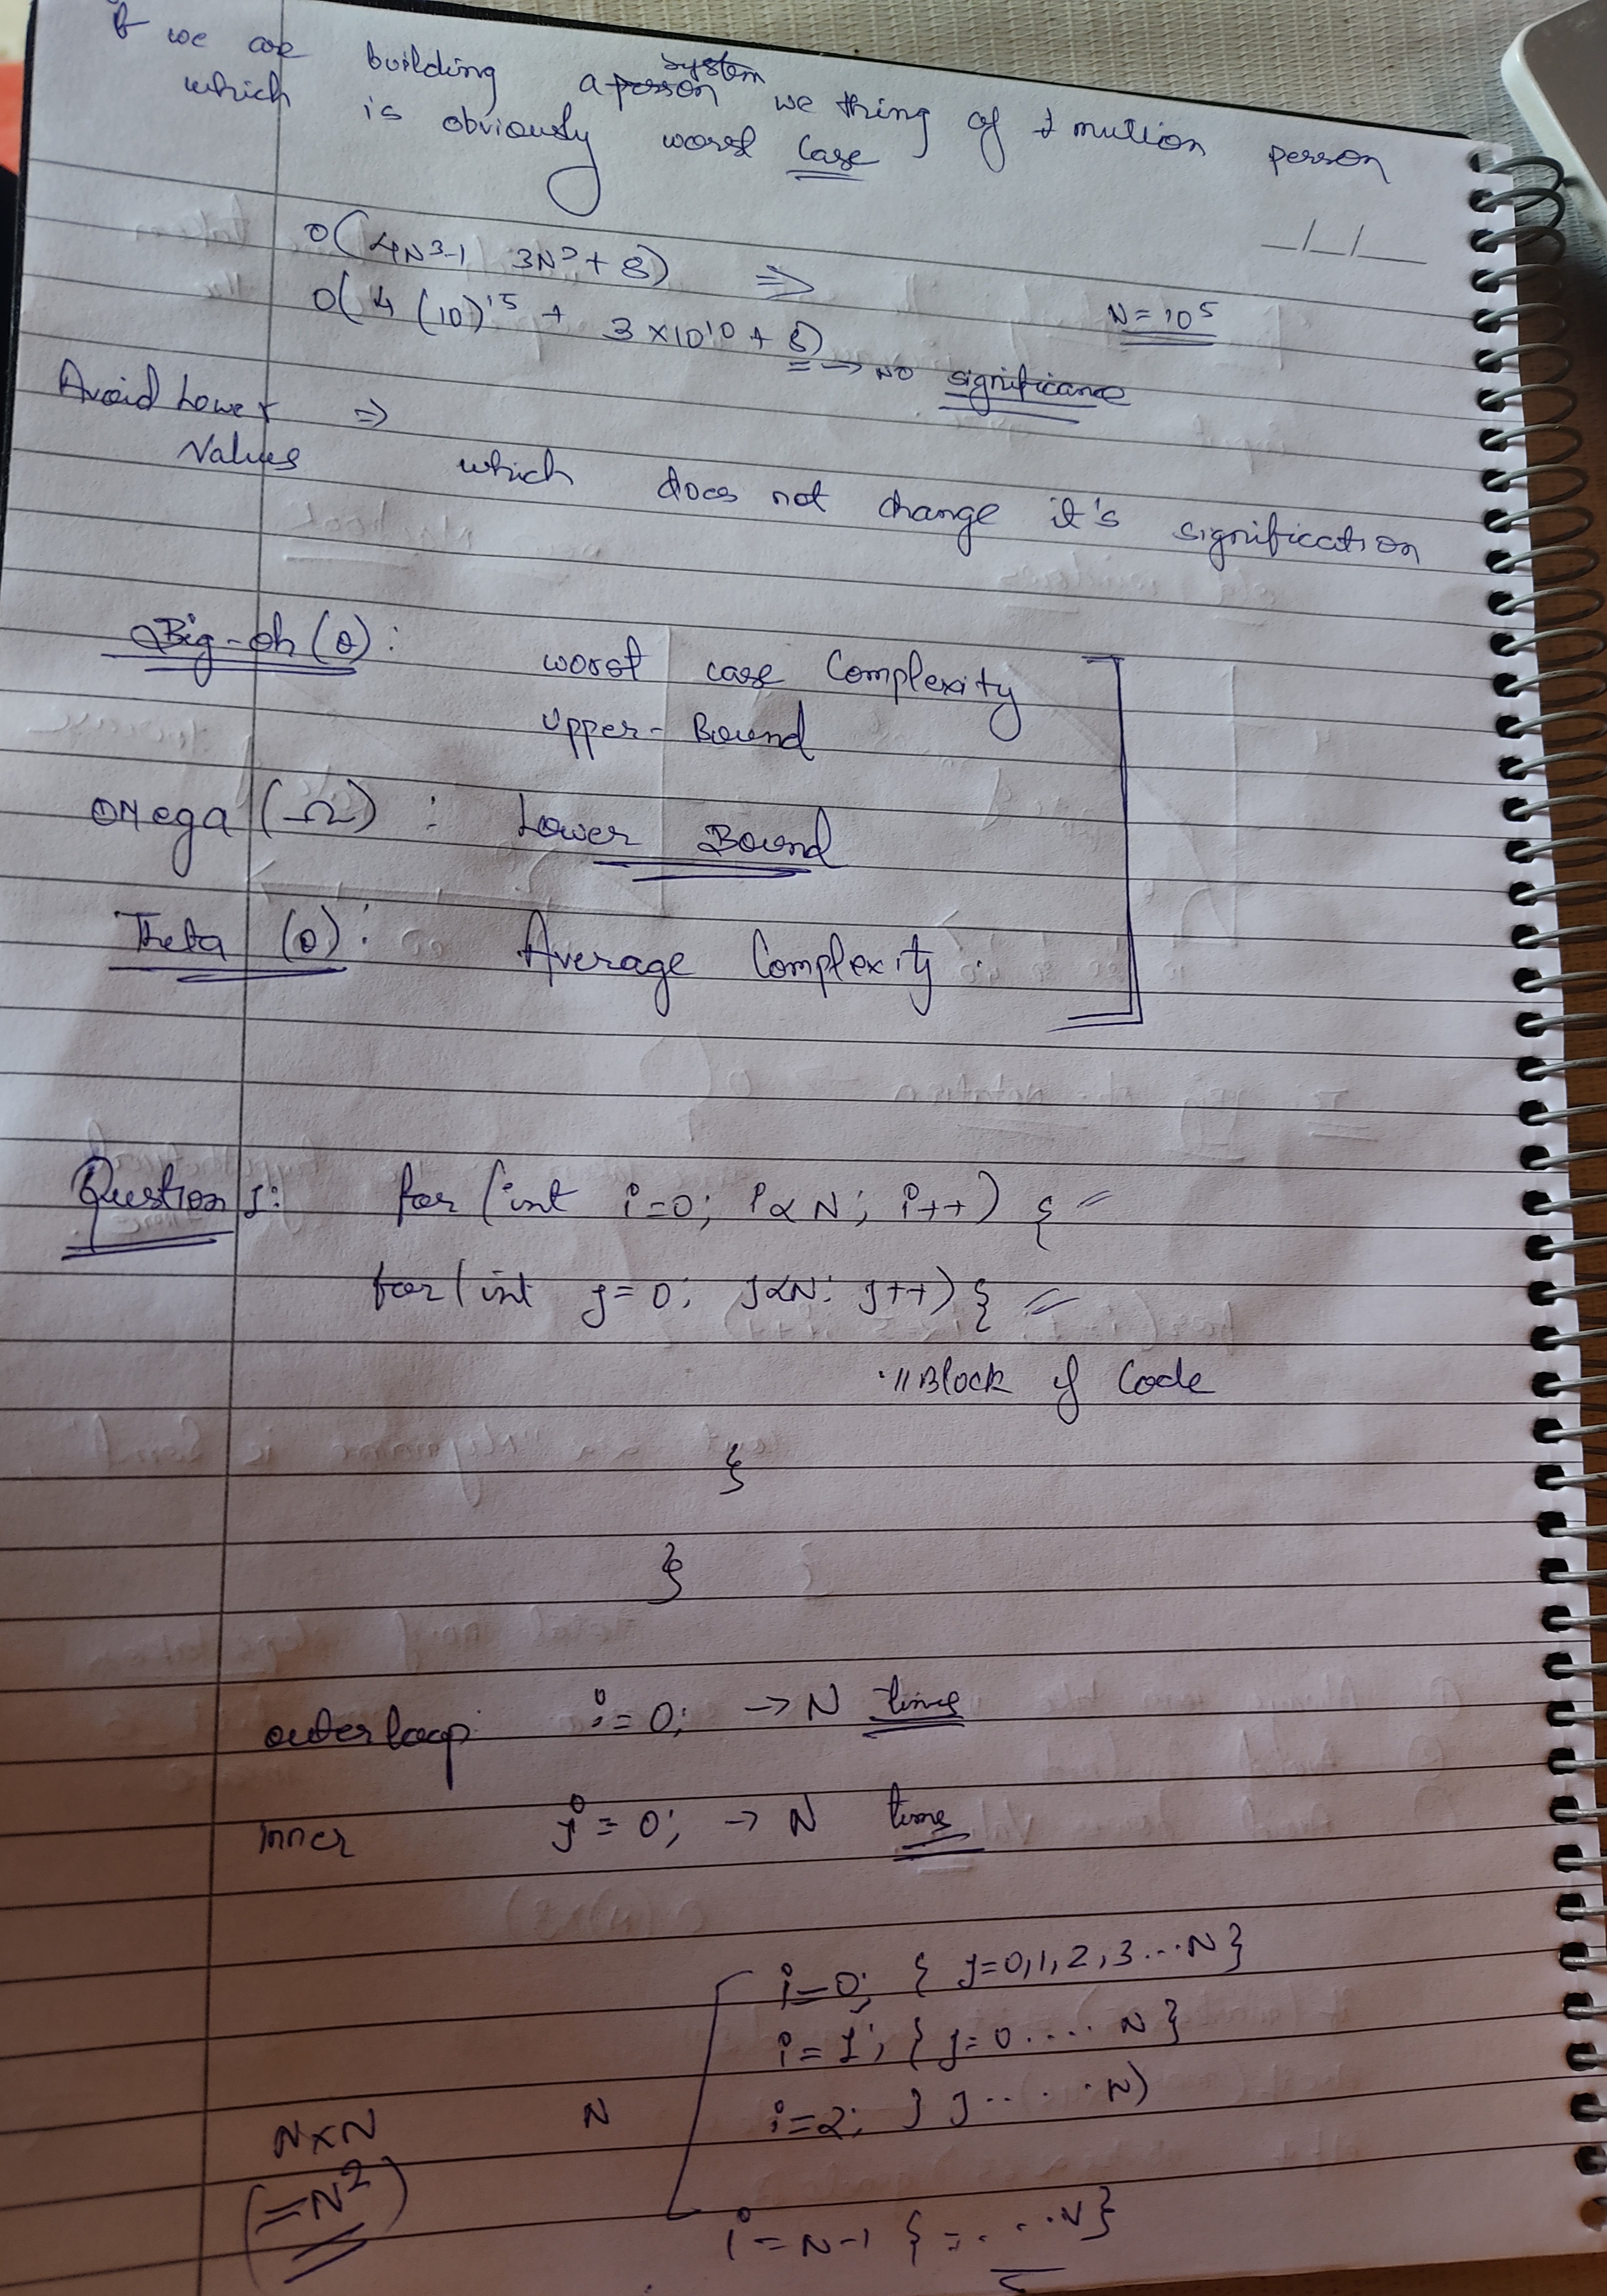 If we are building a person system we thing of 1 million person
which is obviously worst case
_/_/_
O(4N3-1 3N2+8) ⇒
N=10^5
O(4 (10)^15 + 3×10^10 + 8) → NO significance
Avoid Lower ⇒
Values which does not change it's signification
Big-oh (θ): worst case Complexity
Upper-Bound
Omega (Ω) : Lower Bound
Theta (θ): Average Complexity.
Question 1: for (int i=0; i<N; i++) {
for(int j=0; j<N; j++){
//Block of Code
}
}
outerloop i=0; → N times
inner j=0; → N times
i=0; { j=0,1,2,3...N}
i=1; { j=0.... N}
N i=2; } j.... N)
N×N
(=N²)
i=N-1 { =....N}